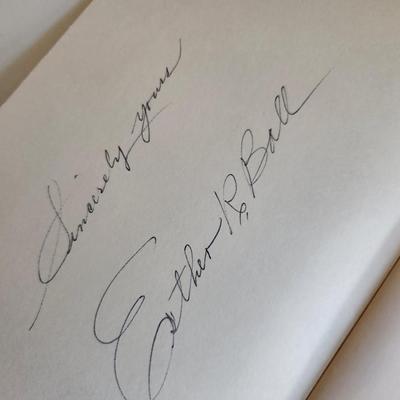 Sincerely Yours
Esther R. Ball